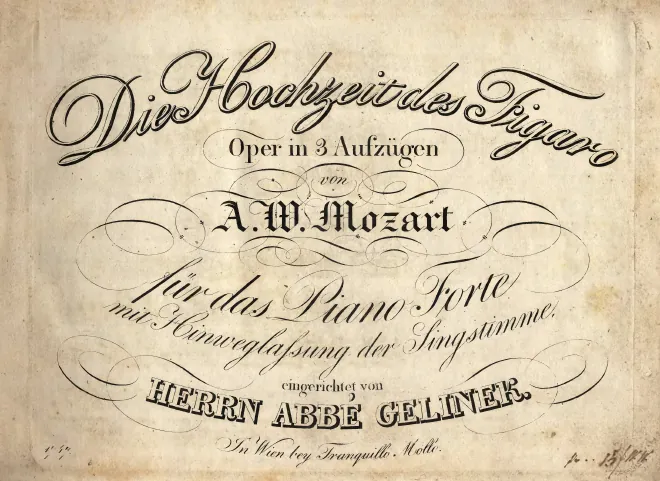 Die Hochzeit des Figaro
Oper in 3 Aufzügen
von
A. W. Mozart
für das Piano Forte
mit Hinweglaſsung der Singstimme.
eingerichtet von
HERRN ABBÉ GELINEK.
In Wien bey Tranquillo Mollo.